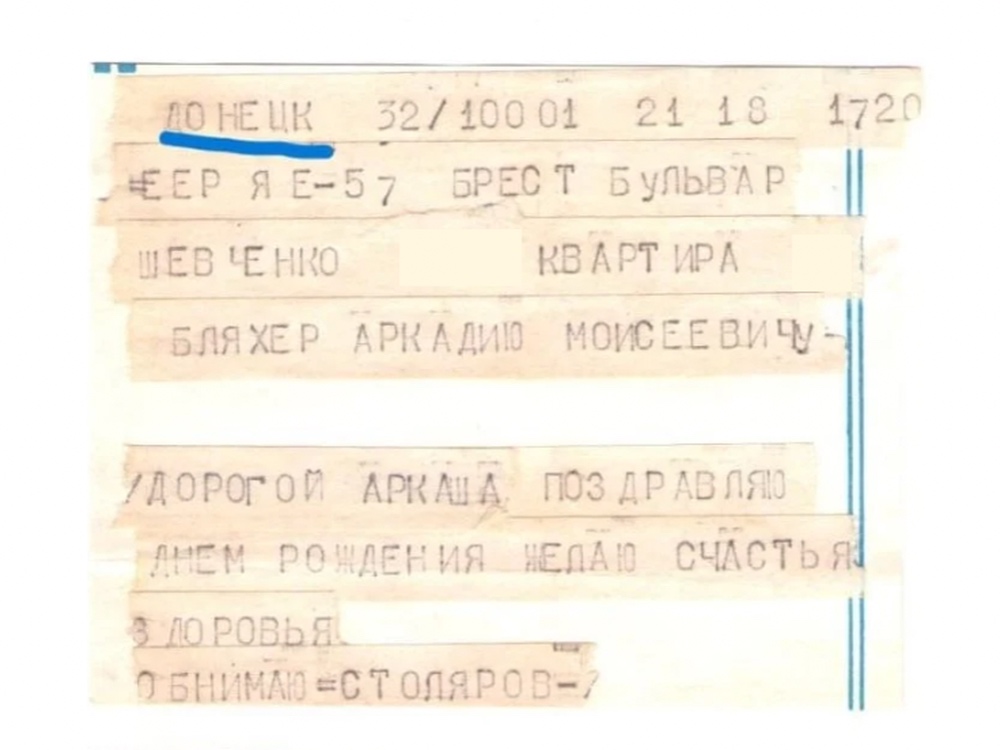 ДОНЕЦК 32/10001 21 18 1720
=ЕЕР Я Е-57 БРЕСТ БУЛЬВАР
ШЕВЧЕНКО КВАРТИРА
БЛЯХЕР АРКАДИЮ МОИСЕЕВИЧУ-
ДОРОГОЙ АРКАША ПОЗДРАВЛЯЮ
ДНЕМ РОЖДЕНИЯ ЖЕЛАЮ СЧАСТЬЯ
ЗДОРОВЬЯ
ОБНИМАЮ=СТОЛЯРОВ-